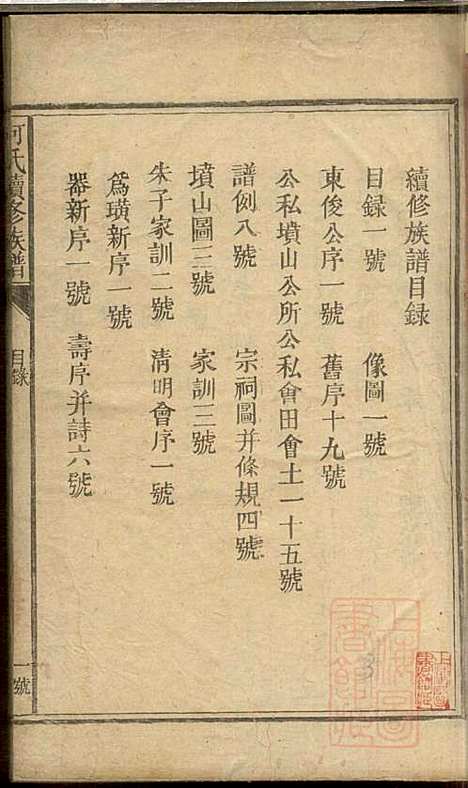 續修族譜目録
目録一號　像圖一號
東俊公序一號　舊序十九號
公私墳山公所公私會田會土一十五號
譜例八號　宗祠圖并條規四號
墳山圖三號　家訓三號
朱子家訓二號　清明會序一號
爲璜新序一號
器新序一號　壽序并詩六號
何氏續修族譜
目録
一號
上海圖書館藏
上海圖書館藏
3